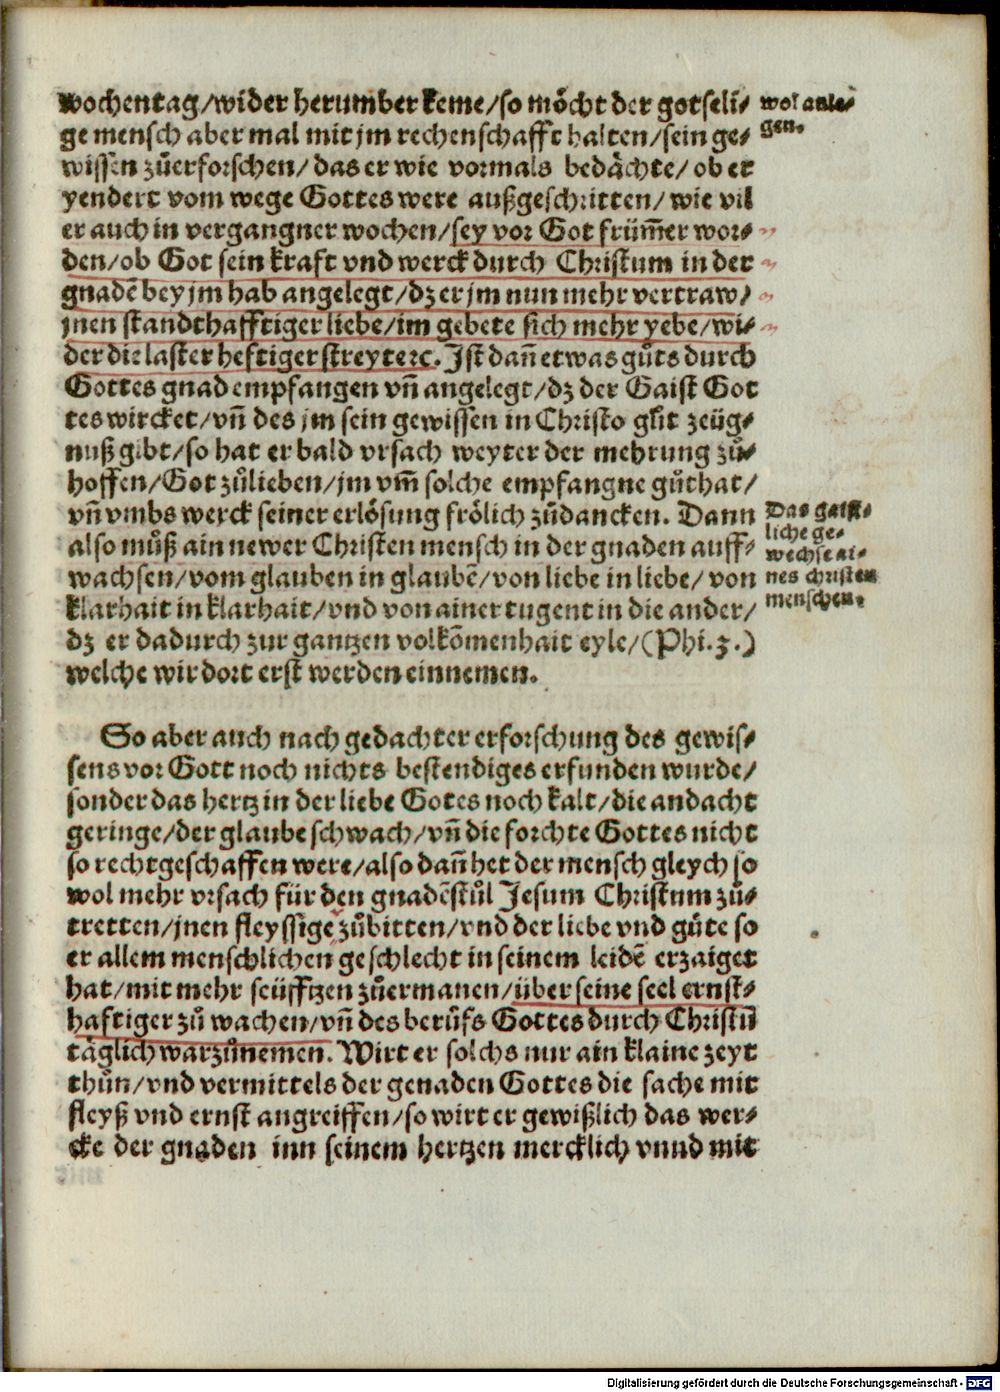 wochentag/wider herumber keme/so möcht der gotseli⸗
ge mensch aber mal mit jm rechenschafft halten/sein ge⸗
wissen zůerforschen/das er wie vormals bedächte/ob er
yendert vom wege Gottes were außgeschritten/wie vil
er auch in vergangner wochen/sey vor Got frümmer wor⸗
den/ob Got sein kraft vnd werck durch Christum in der
gnadē bey jm hab angelegt/dz er jm nun mehr vertraw/
jnen standthafftiger liebe/im gebete sich mehr yebe/wi⸗
der die laster heftiger streyte⁊c. Jst dañ etwas gůts durch
Gottes gnad empfangen vñ angelegt/dz der Gaist Got
tes wircket/vñ des jm sein gewissen in Christo gůt zeüg⸗
nuß gibt/so hat er bald vrsach weyter der mehrung zů⸗
hoffen/Got zůlieben/jm vm̃ solche empfangne gůthat/
vñ vmbs werck seiner erlösung frölich zůdancken. Dann
also můß ain newer Christen mensch in der gnaden auff⸗
wachsen/vom glauben in glaubē/von liebe in liebe/von
klarhait in klarhait/vnd von ainer tugent in die ander/
dz er dadurch zur gantzen volkōmenhait eyle/(Phi.3.)
welche wir dort erst werden einnemen.
wol anle⸗
gen.
Das gaist⸗
liche ge⸗
wechse ai⸗
nes christen
menschen.
So aber auch nach gedachter erforschung des gewis⸗
sens vor Gott noch nichts bestendiges erfunden wurde/
sonder das hertz in der liebe Gotes noch kalt/die andacht
geringe/der glaube schwach/vñ die forchte Gottes nicht
so rechtgeschaffen were/also dañ het der mensch gleych so
wol mehr vrsach für den gnadēstůl Jesum Christum zů⸗
tretten/jnen fleyssige zůbitten/vnd der liebe vnd güte so
er allem menschlichen geschlecht in seinem leidē erzaiget
hat/mit mehr seüfftzen zůermanen/über seine seel ernst⸗
haftiger zů wachen/vñ des berůfs Gottes durch Christū
täglich warzůnemen. Wirt er solchs nur ain klaine zeyt
thůn/vnd vermittels der genaden Gottes die sache mit
fleyß vnd ernst angreiffen/so wirt er gewißlich das wer⸗
cke der gnaden inn seinem hertzen mercklich vnnd mit
Digitalisierung gefördert durch die Deutsche Forschungsgemeinschaft - DFG